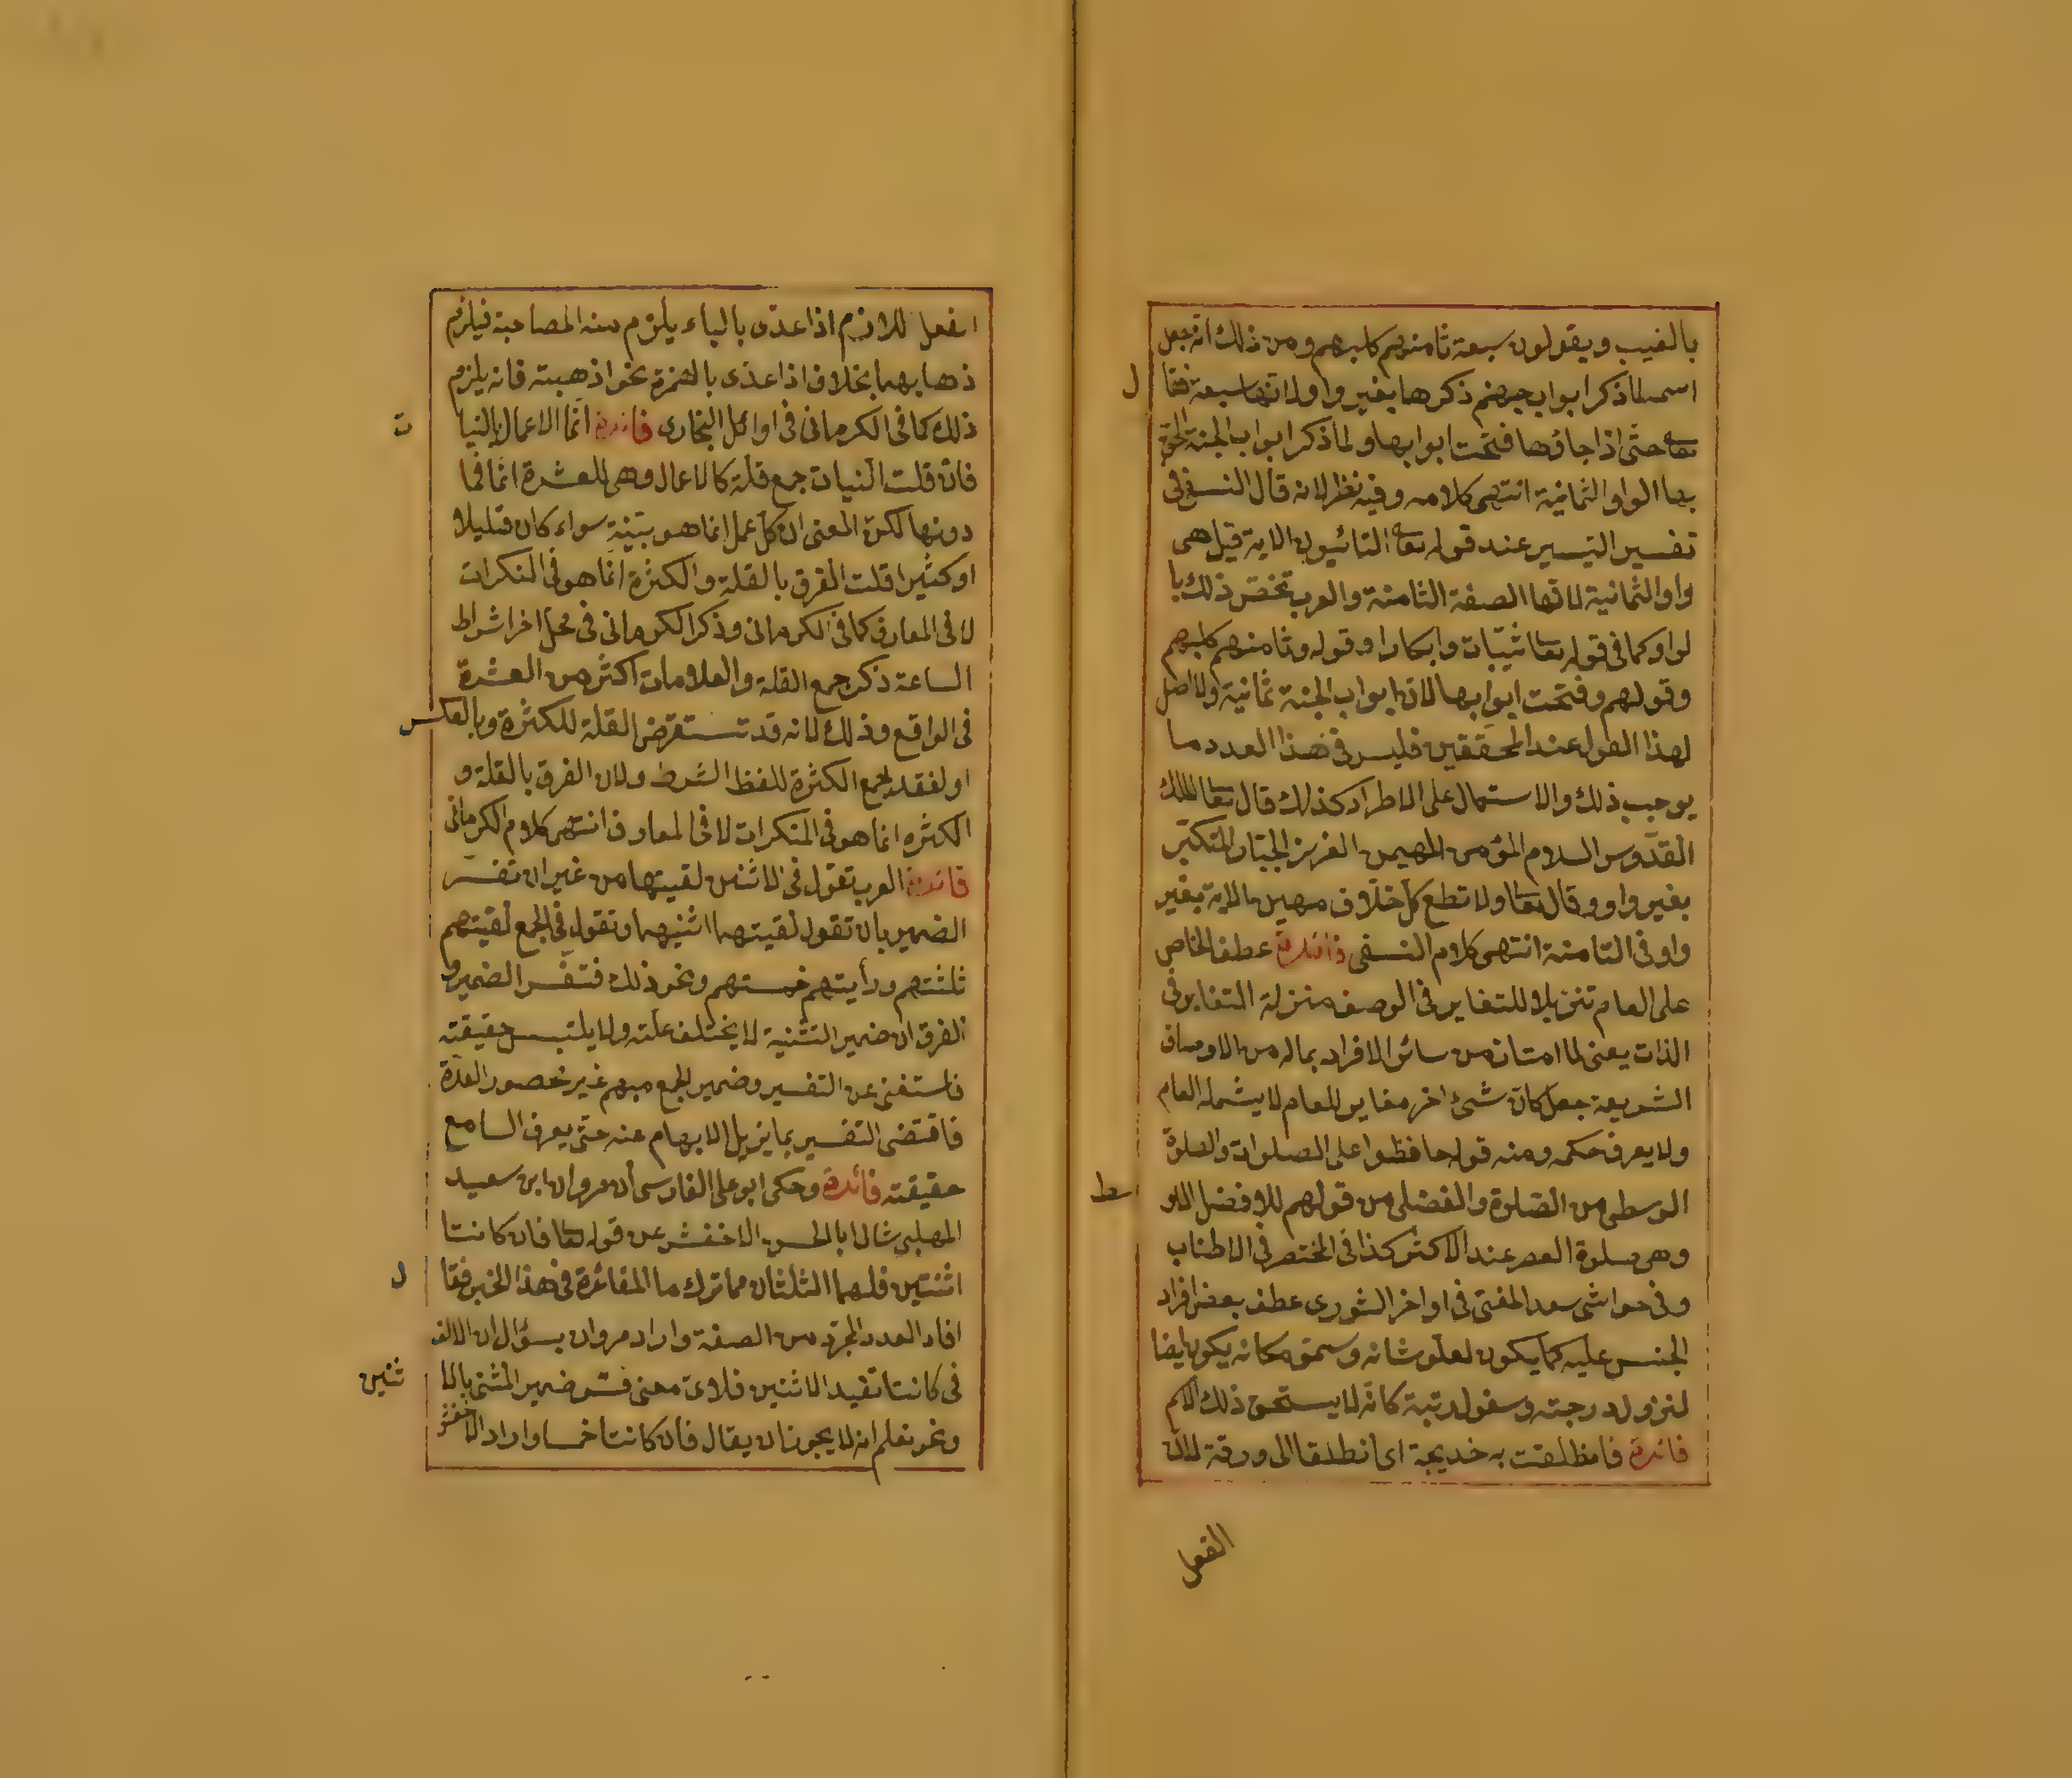 بالغيب ويقولون سبعة ثامنهم كلبهم ومن ذلك انه جعل
اسمه لما ذكر ابواب جهنم ذكرها بغير واو لانها سبعة فقا
ل
تعا حتى اذا جاؤها فتحت ابوابها ولما ذكر ابواب الجنة الحق
بها الواو الثمانية انتهى كلامه وفيه نظر لانه قال النسفى فى
تفسير التيسير عند قوله تعا التائبون الاية قيل هى
واو الثمانية لانها الصفة الثامنة والعرب تختص ذلك با
لواو كما فى قوله تعا ثيبات وابكارا وقوله وثامنهم كلبهم
وقولهم وفتحت ابوابها لان ابواب الجنة ثمانية ولا اصل
لهذا القول عند المحققين فليس فى هذا العدد ما
يوجب ذلك والاستعمال على الاطراد كذلك قال تعا الملك
القدوس السلام المؤمن المهيمن العزيز الجبار المتكبر
بغير واو وقال تعا ولا تطع كل خلاف مهين الاية بغير
واو فى الثامنة انتهى كلام النسفى فائدة عطف الخاص
على العام تنزيلا للتغاير فى الوصف منزلة التغاير فى
الذات يعنى لما امتاز من سائر الافراد بماله من الاوصاف
الشريعة جعل كان شئ اخر مغاير للعام لا يشمله العام
ولا يعرف حكمه ومنه قوله حافظوا على الصلوات والصلوة
الوسطى من الصلوة والفضلى من قولهم للافضل الاو
سط
وهى صلوة العصر عند الاكثر كذا فى المختصر فى الاطناب
وفى حواشى سعد المفتى فى اواخر الشورى عطف بعض افراد
الجنس عليه كما يكون لعلو شانه وسمو مكانه يكون ايضا
لنزول درجته وسفول رتبة كانه لا يستحق ذلك الاسم
فائدة فانطلقت به خديجة اى انطلقا الى ورقة لان
الفعل
الفعل اللازم اذا عدى بالباء يلزم منه المصاحبة فيلزم
ذهابهما بخلاف اذا عدى بالهمزة نحو اذهبته فانه يلزم
ذلك كما فى الكرمانى فى اوائل البخارى فائدة انما الاعمال بالنيا
ت
فان قلت النيات جمع قلة كالاعمال وهى للعشرة انما فما
دونها لكن المعنى ان كل عمل انما هو بنية سواء كان قليلا
او كثيرا قلت الفرق بالقلة والكثرة انما هو فى النكرات
لا فى المعارف كما فى الكرمانى وذكر الكرمانى فى محل اخر اشراط
الساعة ذكر جمع القلة والعلامات اكثر من العشرة
فى الواقع وذلك لانه قد تستقرض القلة للكثرة وبالعكس
او لفقد جمع الكثرة للفظ الشرط ولان الفرق بالقلة و
الكثره انما هو فى المنكرات لا فى المعارف انتهى كلام الكرمانى
فائدة العرب تقول فى الاثنين لقيتهما من غير ان تفسر
الضمير بان تقول لقيتهما اثنيهما وتقول فى الجمع لقيتهم
ثلثتهم ورأيتهم خمستهم ونحو ذلك فتفسر الضمير و
الفرق ان ضمير التثنية لا يختلف علته ولا يلتبس حقيقته
فاستغنى عن التفسير وضمير الجمع مبهم غير محصور العدة
فاقتضى التفسير بما يزيل الابهام عنه حتى يعرف السامع
حقيقته فائدة وحكى ابو على الفارسى أن مروان ابن سعيد
المهلبى شال ابا الحسن الاخفش عن قوله تعا فان كانتا
اثنتين فلهما الثلثان مما ترك ما الفائدة فى هذا الخبر فقا
ل
افاد العدد المجرد من الصفة واراد مروان بسؤال ان الالف
فى كانتا تفيد الاثنين فلاى معنى فسر ضمير المثنى بالا
ثنين
ونحو نعلم انه لا يجوز ان يقال فان كانتا خمسا واراد الاخفش